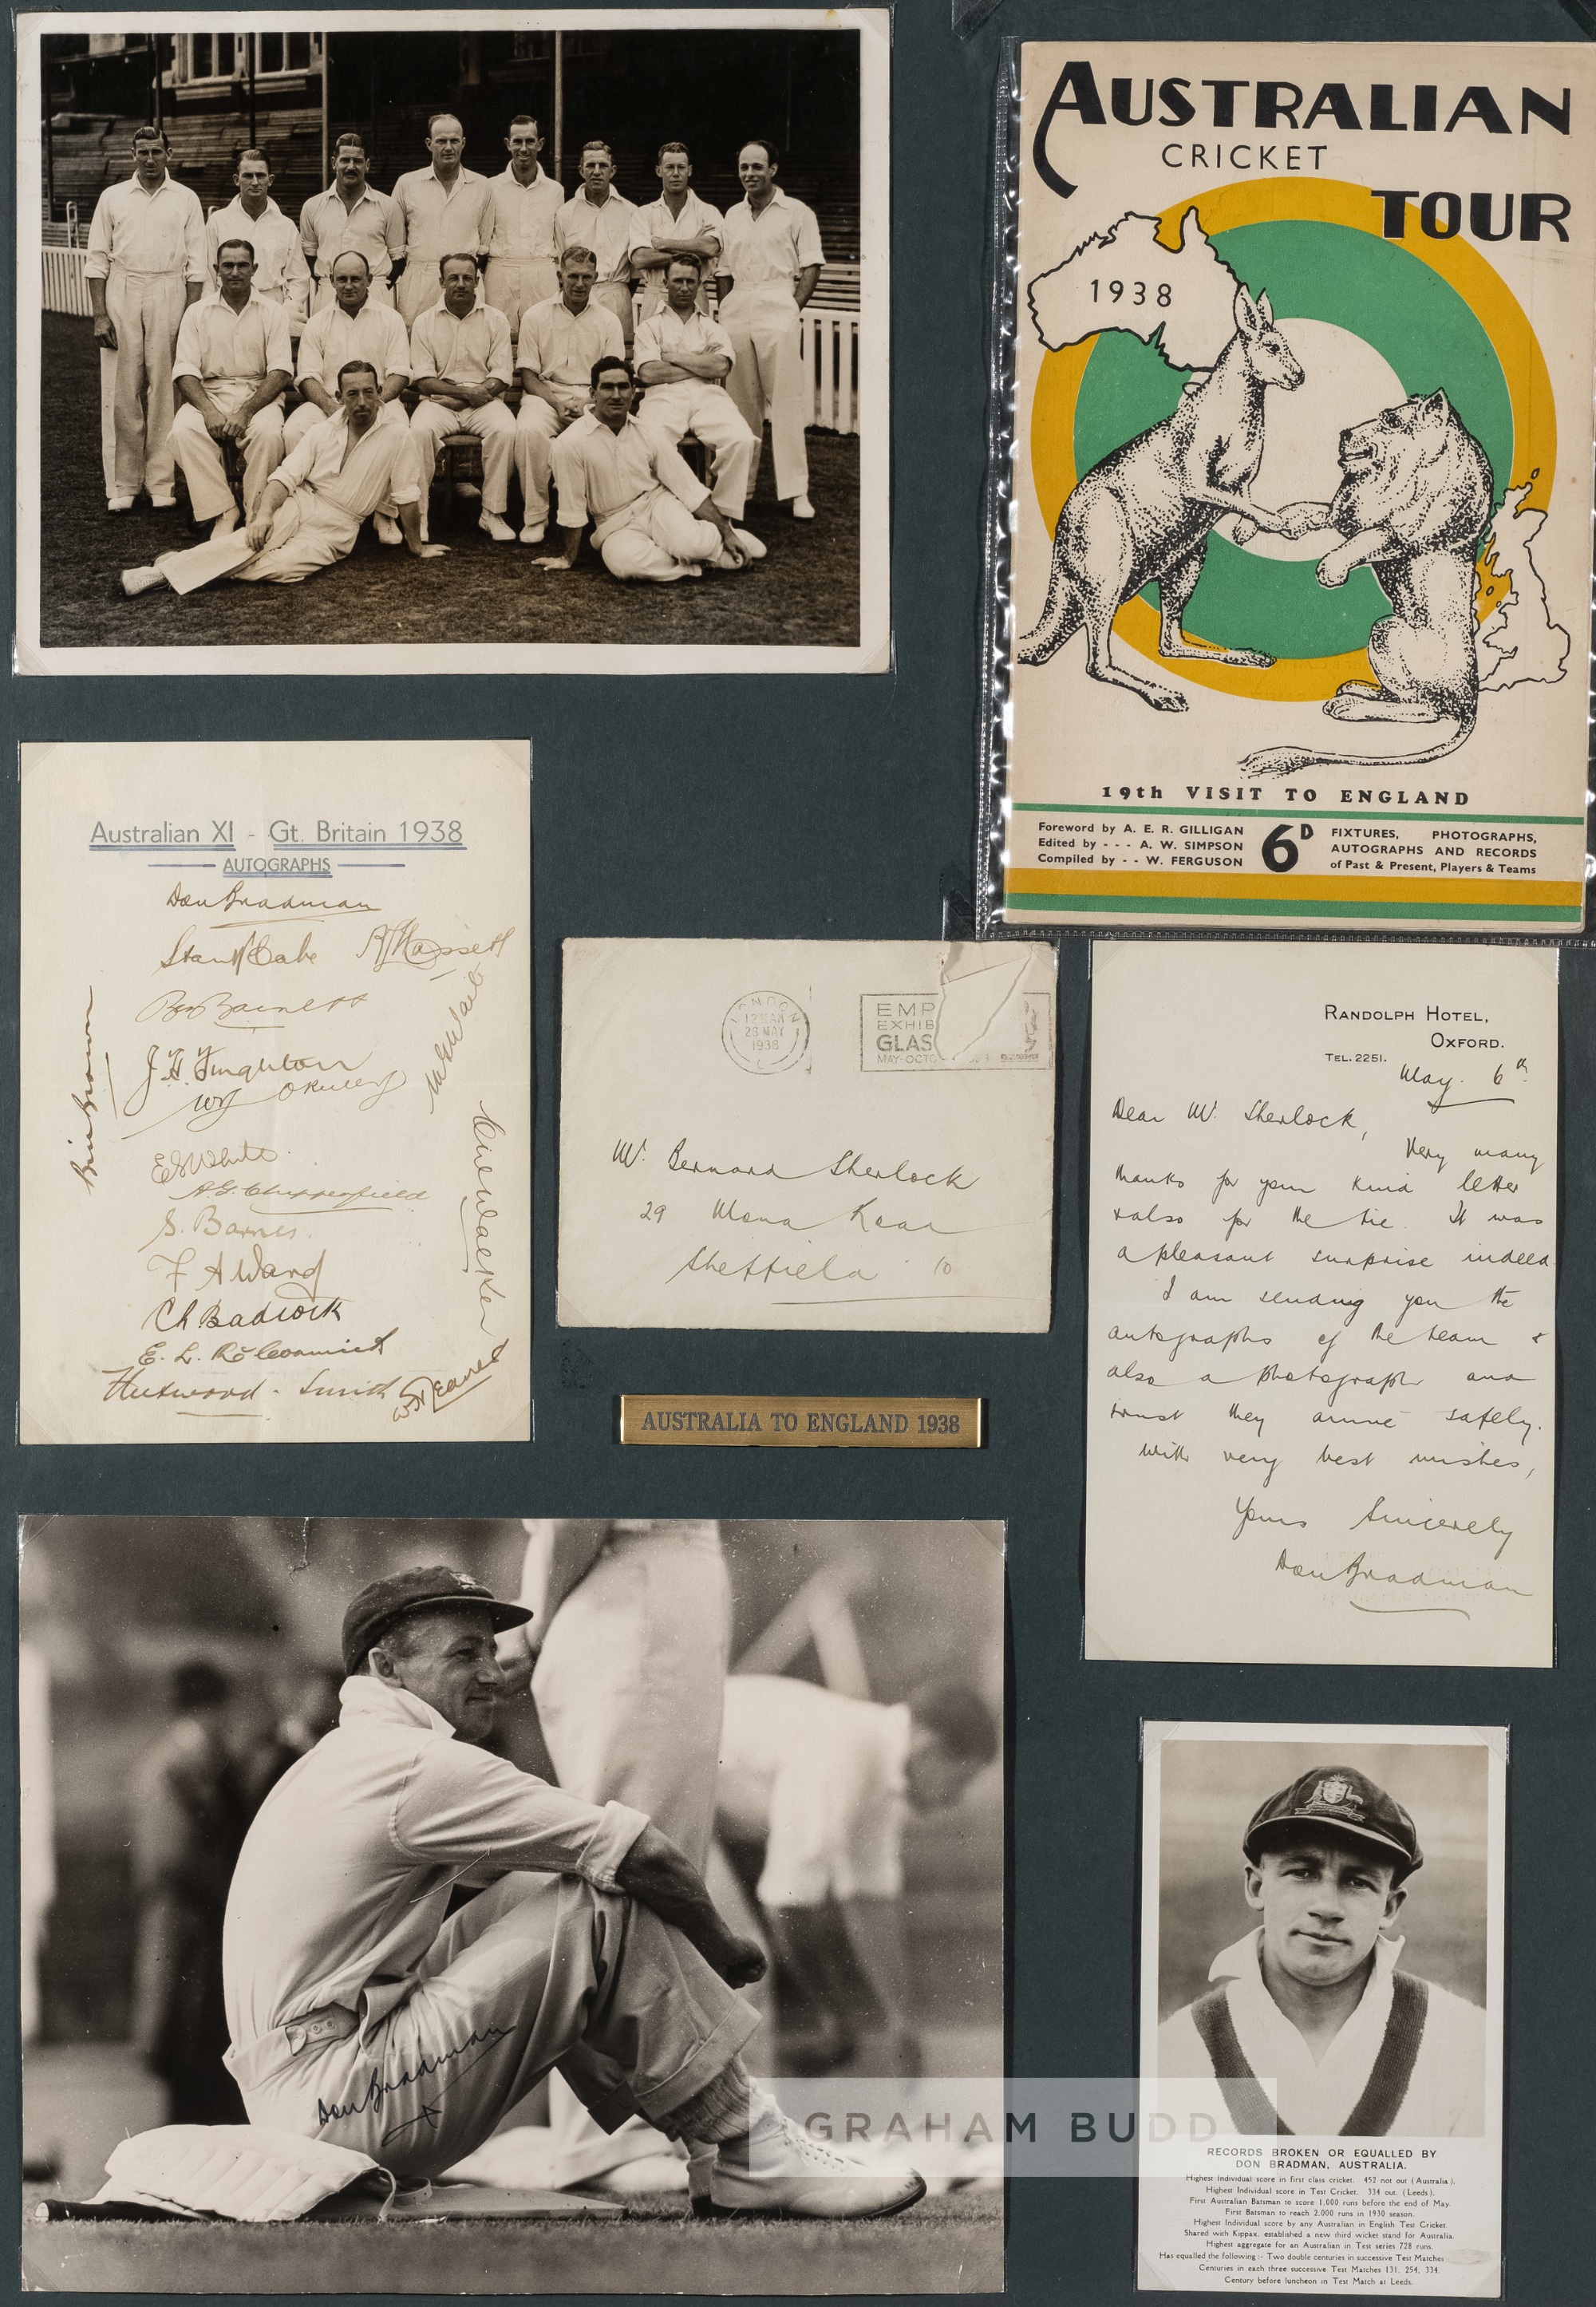 AUSTRALIAN
CRICKET
TOUR
1938
19th VISIT TO ENGLAND
Foreword by A. E. R. GILLIGAN
Edited by - - - A. W. SIMPSON
Compiled by - - W. FERGUSON
6D
FIXTURES, PHOTOGRAPHS,
AUTOGRAPHS AND RECORDS
of Past & Present, Players & Teams
Australian XI - Gt. Britain 1938
AUTOGRAPHS
Don Bradman
Stan McCabe
A L Hassett
B A Barnett
J. H. Fingleton
W J O'Reilly
E S White
A. G. Chipperfield
S. Barnes.
F A Ward
C L Badcock
E. L. McCormick
Fleetwood-Smith
Bill Brown
M G Waite
C W Walker
LONDON
12 15 AM
23 MAY
1938
EMP
EXHIB
GLAS
MAY-OCTO
Mr. Bernard Sherlock
29 Mona Road
Sheffield 10
AUSTRALIA TO ENGLAND 1938
RANDOLPH HOTEL,
OXFORD.
TEL. 2251.
May. 6th
Dear Mr. Sherlock,
Very many
thanks for your kind letter
& also for the tie. It was
a pleasant surprise indeed.
I am sending you the
autographs of the team &
also a photograph and
trust they arrive safely.
With very best wishes,
Yours Sincerely
Don Bradman
Don Bradman
GRAHAM BUDD
RECORDS BROKEN OR EQUALLED BY
DON BRADMAN, AUSTRALIA.
Highest Individual score in first class cricket. 452 not out (Australia).
Highest Individual score in Test Cricket. 334 out. (Leeds).
First Australian Batsman to score 1,000 runs before the end of May.
First Batsman to reach 2,000 runs in 1930 season.
Highest Individual score by any Australian in English Test Cricket.
Shared with Kippax, established a new third wicket stand for Australia.
Highest aggregate for an Australian in Test series 728 runs.
Has equalled the following :- Two double centuries in successive Test Matches
Centuries in each three successive Test Matches 131, 254, 334.
Century before luncheon in Test Match at Leeds.